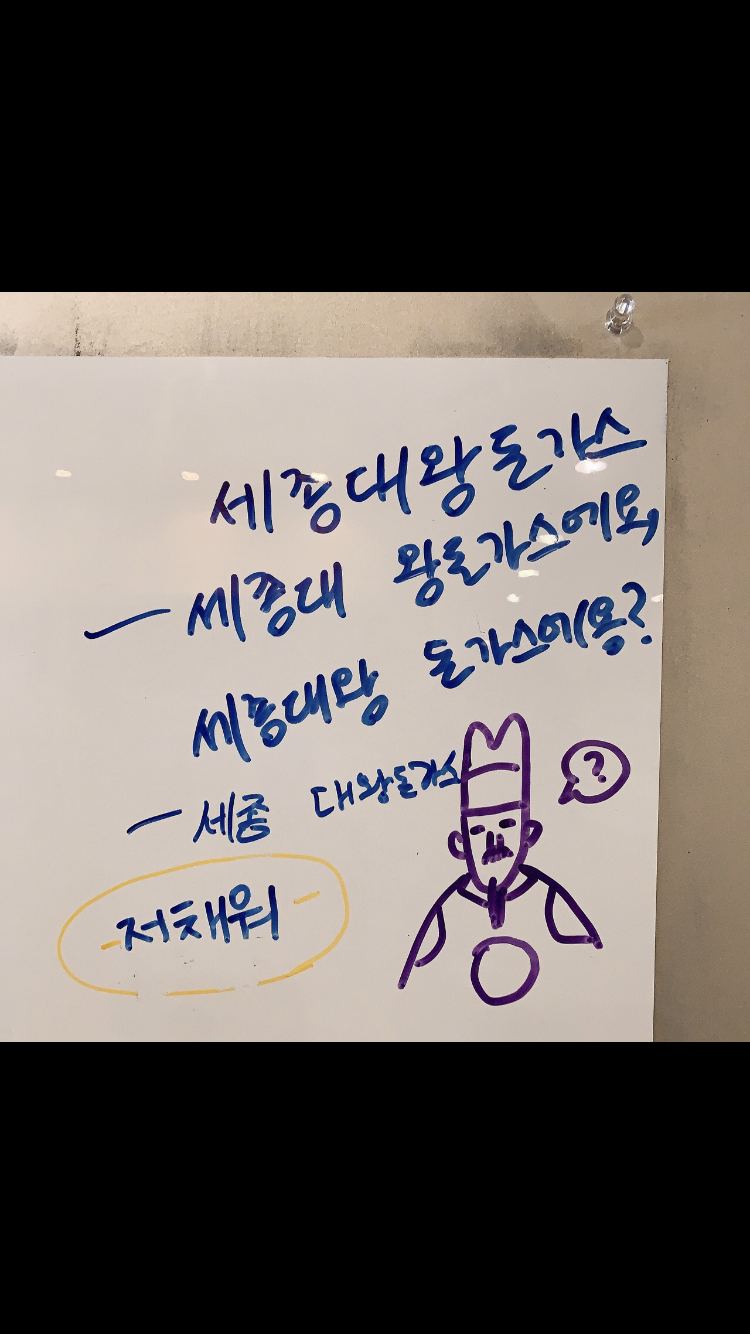 세종대왕돈가스
세종대 왕돈가스에요,
세종대왕 돈가스에용?
세종 대왕돈가스
?
저채워